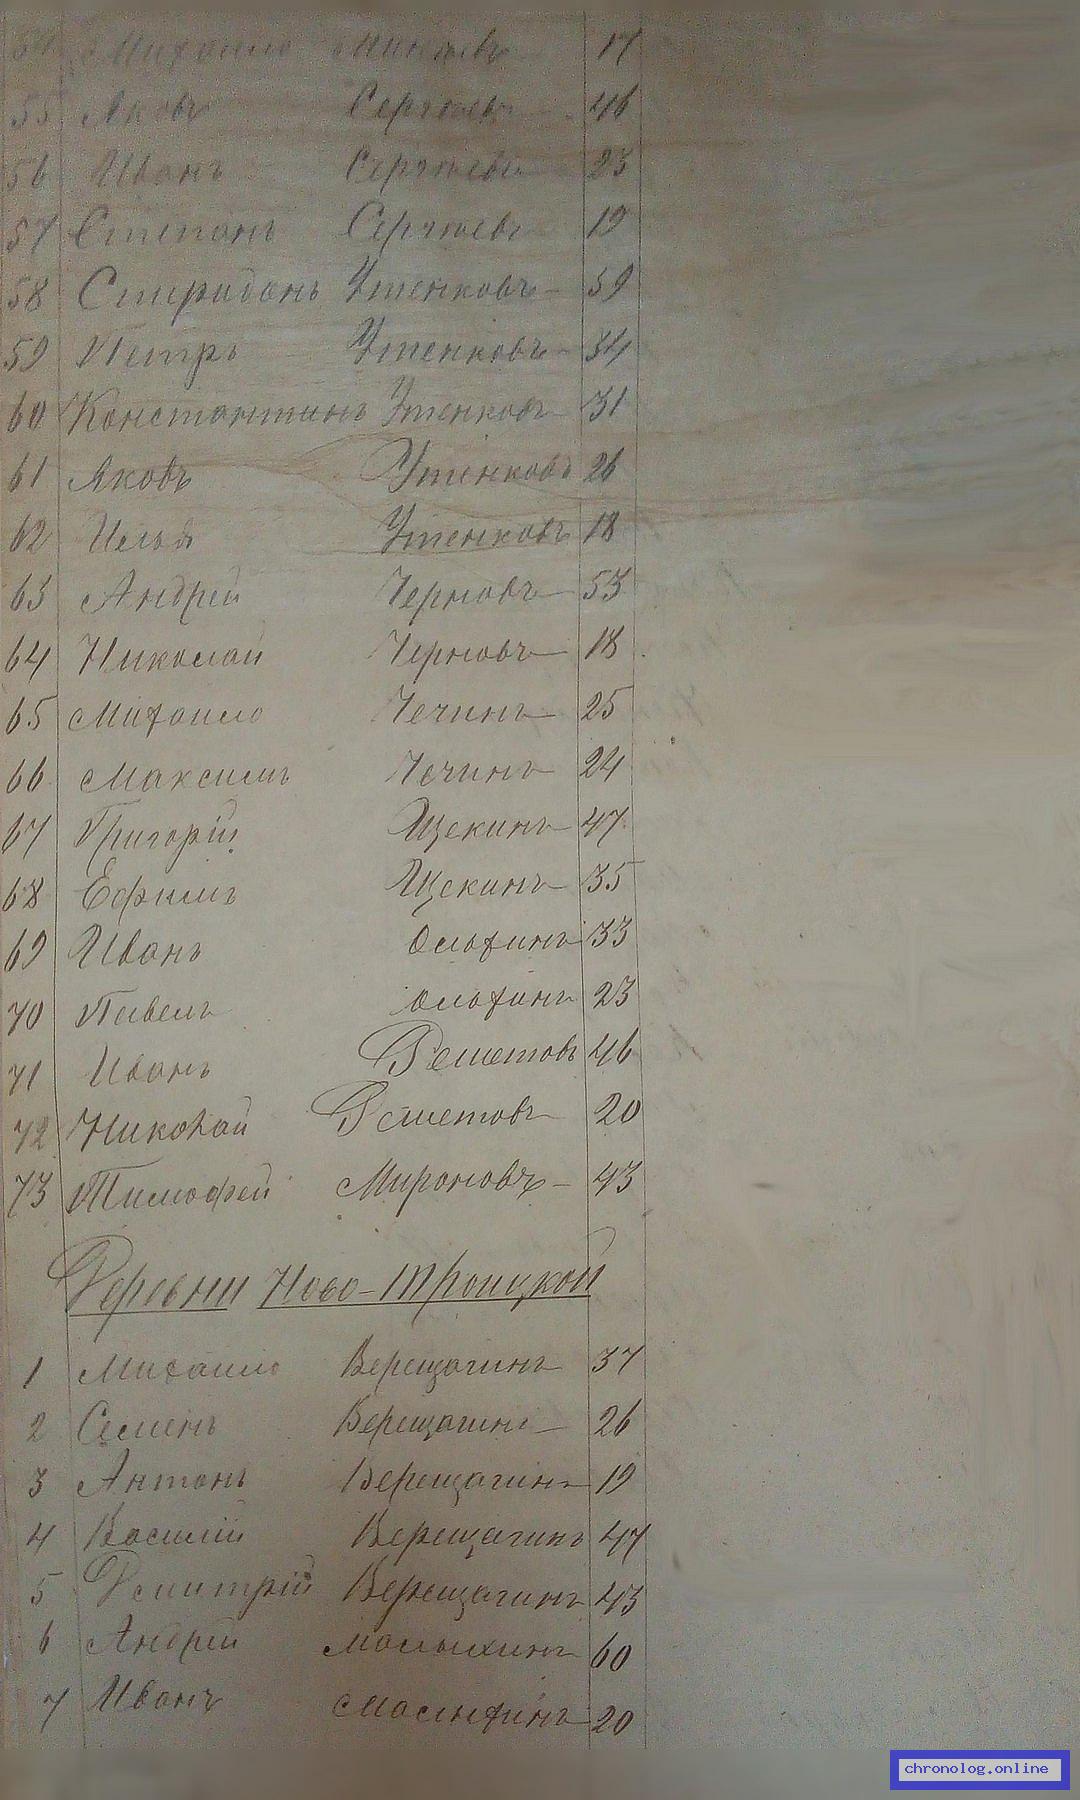 54 Михаило Минаевъ 17
55 Яковъ Сергѣевъ 46
56 Иванъ Сергѣевъ 23
57 Степанъ Сергѣевъ 19
58 Спиридонъ Утенковъ 59
59 Петръ Утенковъ 34
60 Константинъ Утенковъ 31
61 Яковъ Утенковъ 26
62 Илья Утенковъ 18
63 Андрей Черновъ 53
64 Николай Черновъ 18
65 Михаило Чечинъ 25
66 Максимъ Чечинъ 24
67 Григорій Щекинъ 47
68 Ефимъ Щекинъ 35
69 Иванъ Ольхинъ 33
70 Павелъ Ольхинъ 23
71 Иванъ 46
72 Николай 20
73 Тимофей Мироновъ 43
Деревни Ново-Троицкой
1 Михаило Верещагинъ 37
2 Семенъ Верещагинъ 26
3 Антонъ Верещагинъ 19
4 Василій Верещагинъ 47
5 Дмитрій Верещагинъ 43
6 Андрей Малыхинъ 60
7 Иванъ Малыхинъ 20
chronolog.online